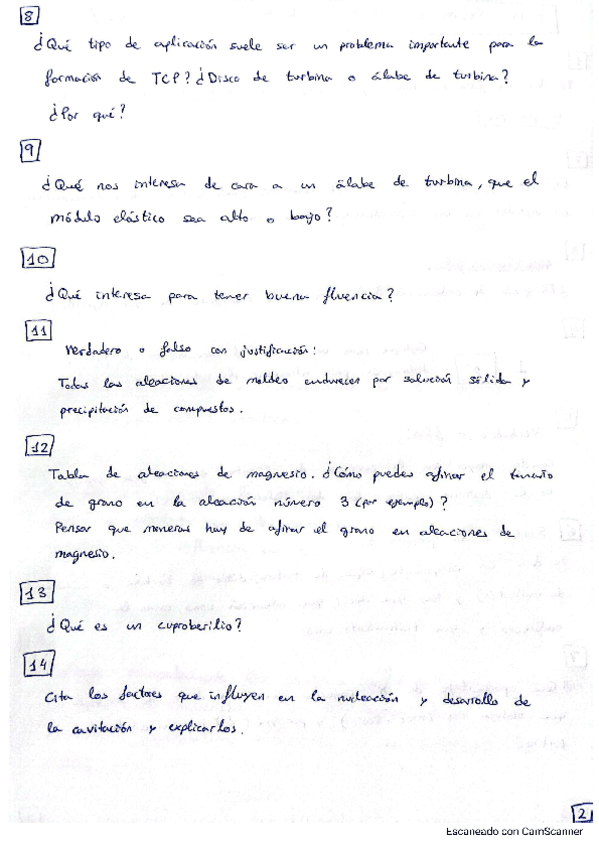 8
¿Qué tipo de aplicación suele ser un problema importante para la
formación de TCP? ¿Disco de turbina o álabe de turbina?
¿Por qué?
9
¿Qué nos interesa de cara a un álabe de turbina, que el
módulo elástico sea alto o bajo?
10
¿Qué interesa para tener buena fluencia?
11
Verdadero o falso con justificación:
Todas las aleaciones de moldeo endurecen por solución sólida y
precipitación de compuestos.
12
Tabla de aleaciones de magnesio. ¿Cómo puedes afinar el tamaño
de grano en la aleación número 3 (por ejemplo)?
Pensar que maneras hay de afinar el grano en aleaciones de
magnesio.
13
¿Qué es un cuproberilio?
14
Cita los factores que influyen en la nucleación y desarrollo de
la cavitación y explicarlos.
2
Escaneado con CamScanner